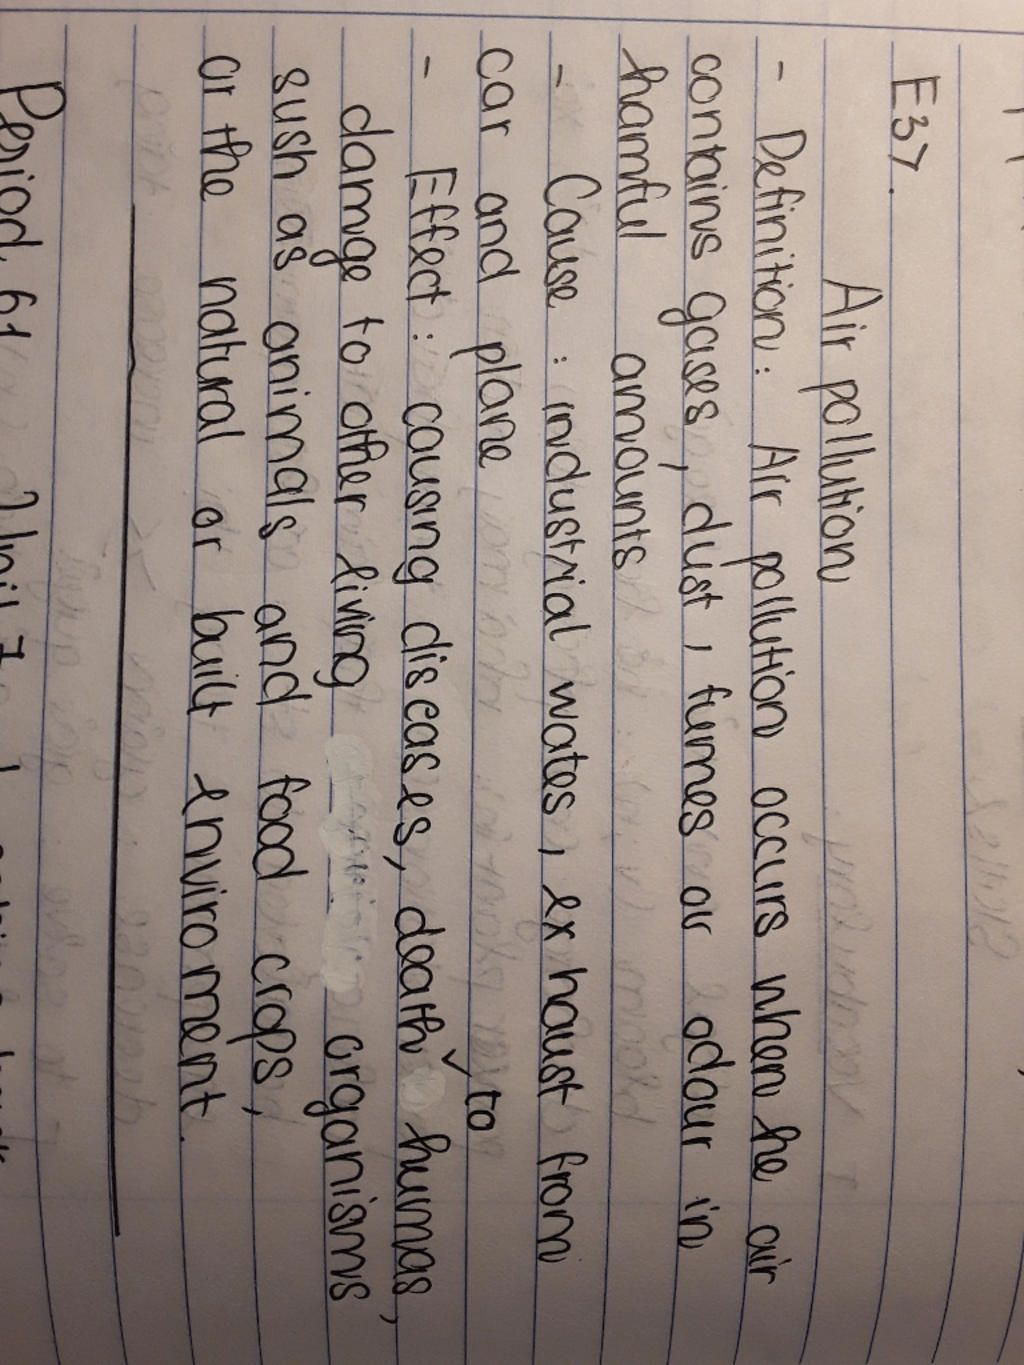 E3>.
Air pollution
- Definition: Air pollution occurs when he air
contains gases, dust, fumes or odour in
hamful amounts
- Cause : industrial wates, exhaust from
car and plane
- Effect: causing diseases, death ˅to humas,
damge to other living organisms
sush as animals and food crops,
or the natural or built enviroment.
Period 61